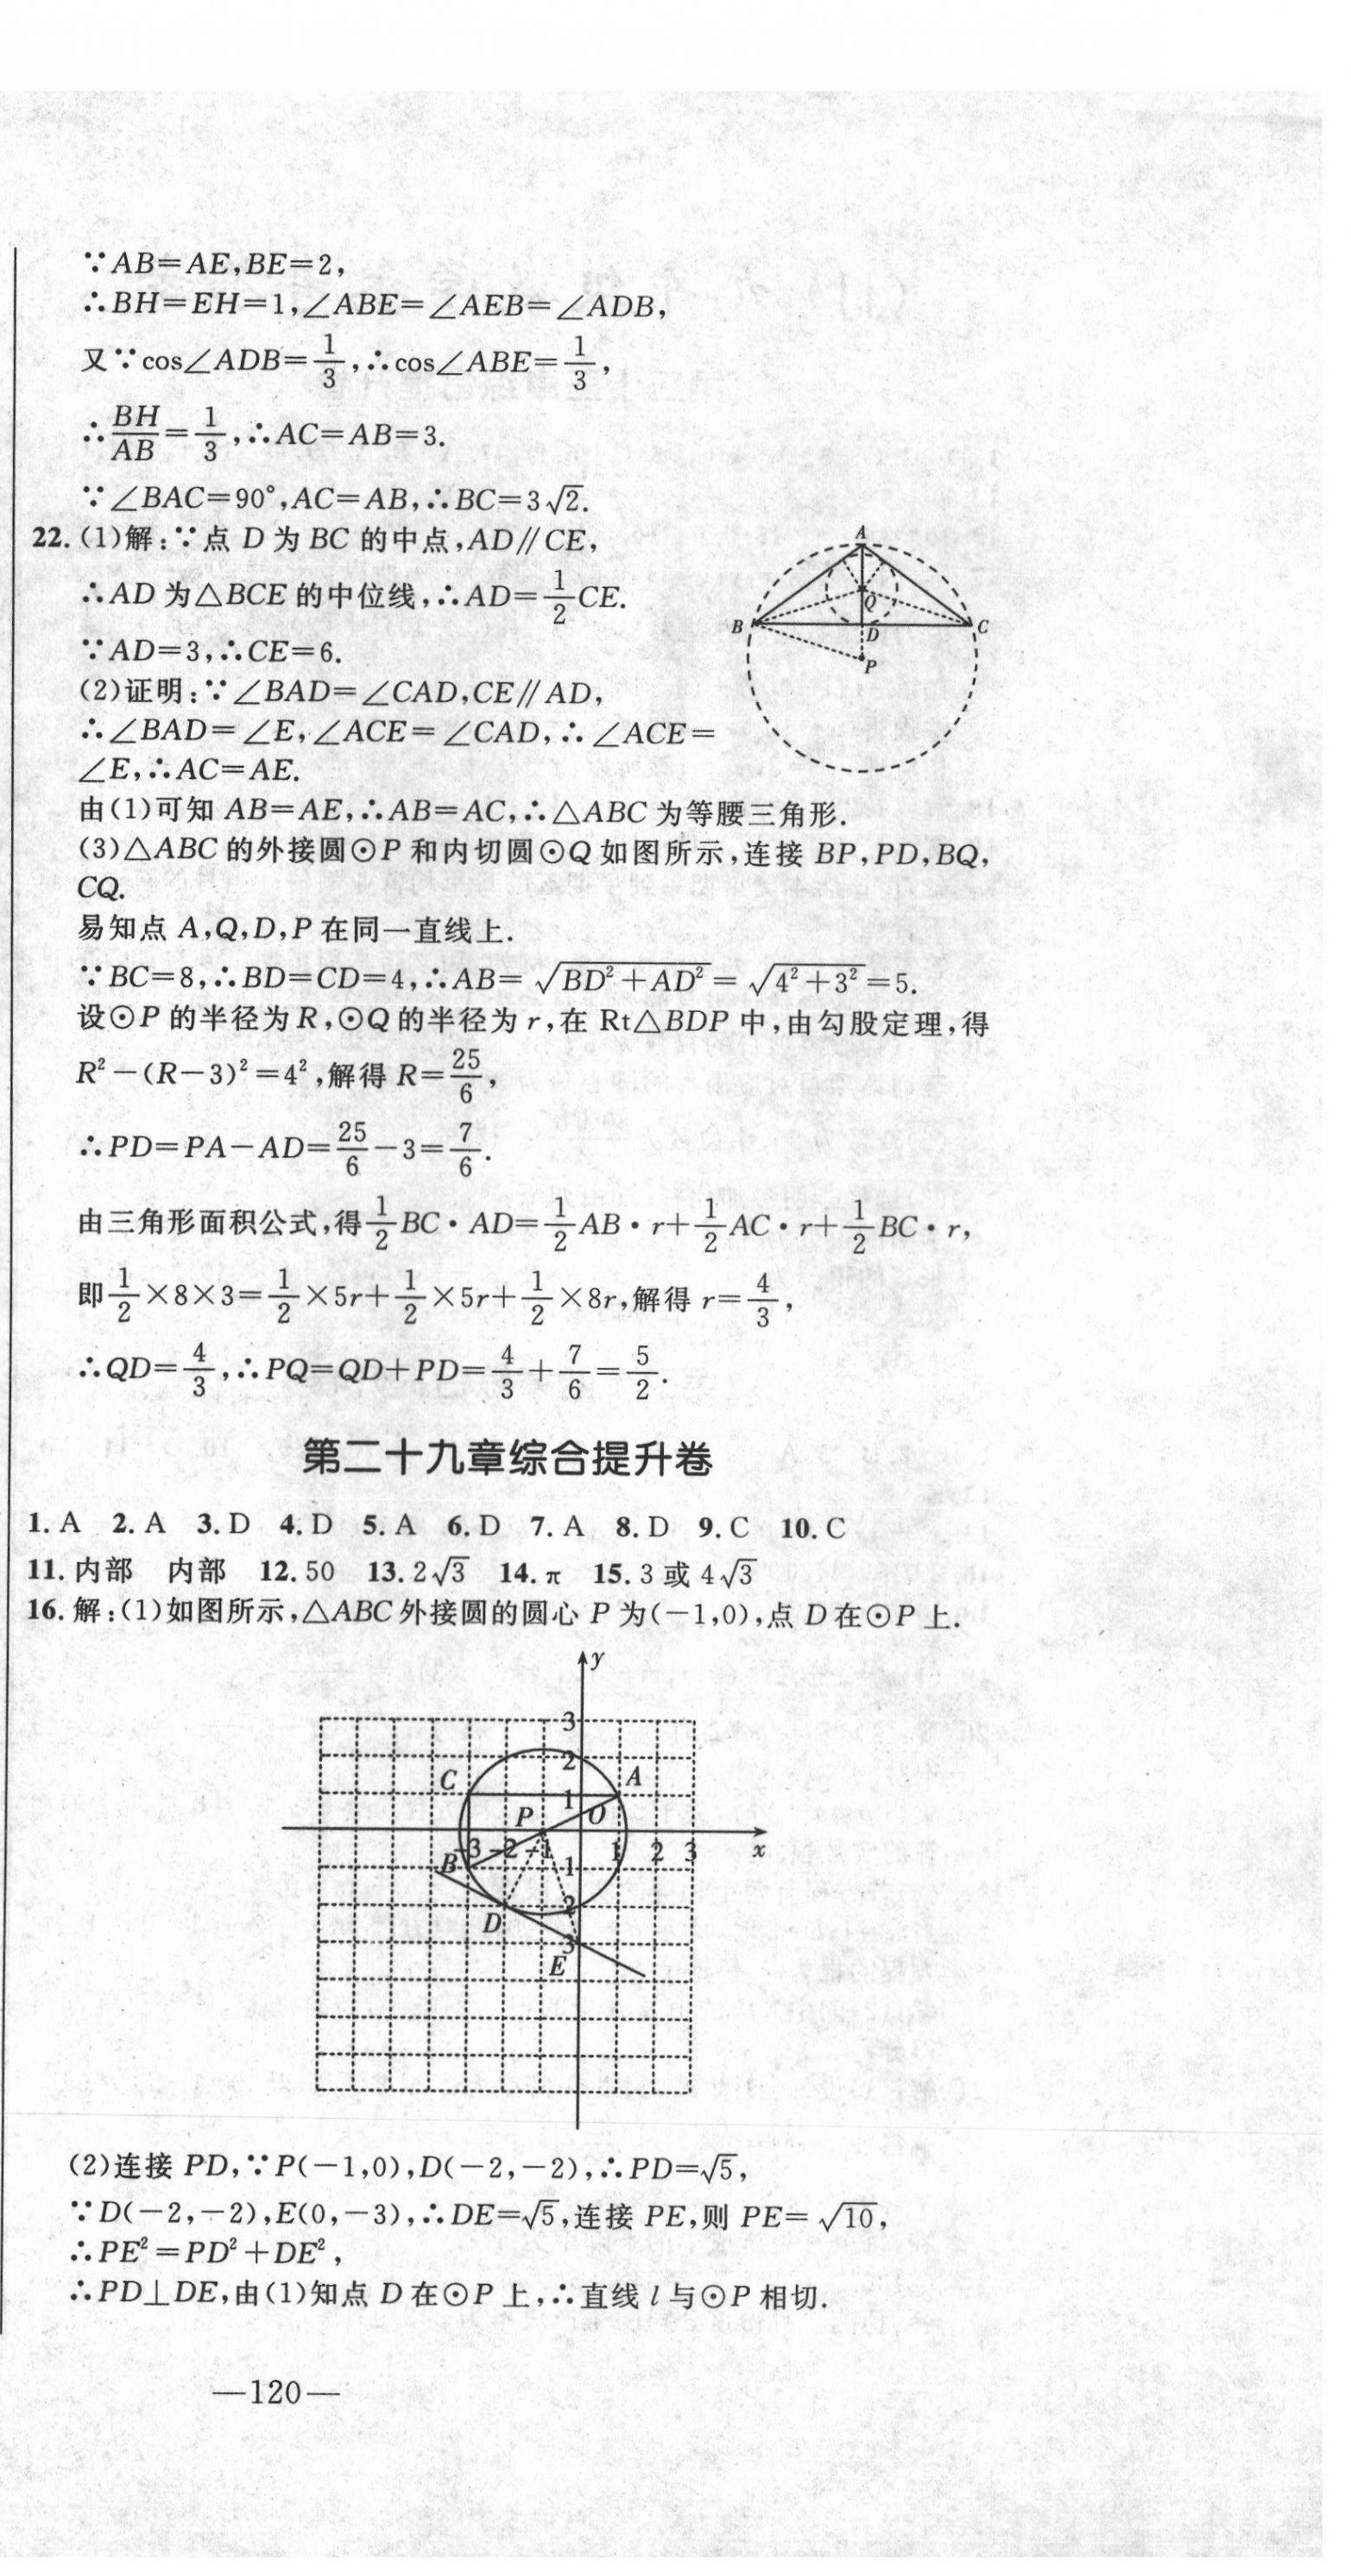 ∵AB=AE,BE=2,
∴BH=EH=1,∠ABE=∠AEB=∠ADB,
又∵cos∠ADB=1/3,∴cos∠ABE=1/3,
∴BH/AB=1/3,∴AC=AB=3.
∵∠BAC=90°,AC=AB,∴BC=3√2.
22.(1)解:∵点 D 为 BC 的中点,AD∥CE,
∴AD 为△BCE 的中位线,∴AD=1/2CE.
∵AD=3,∴CE=6.
(2)证明:∵∠BAD=∠CAD,CE∥AD,
∴∠BAD=∠E,∠ACE=∠CAD,∴∠ACE=
∠E,∴AC=AE.
A
Q
B
D
C
P
由(1)可知 AB=AE,∴AB=AC,∴△ABC 为等腰三角形.
(3)△ABC 的外接圆⊙P 和内切圆⊙Q 如图所示,连接 BP,PD,BQ,
CQ.
易知点 A,Q,D,P 在同一直线上.
∵BC=8,∴BD=CD=4,∴AB=√(BD²+AD²)=√(4²+3²)=5.
设⊙P 的半径为 R,⊙Q 的半径为 r,在 Rt△BDP 中,由勾股定理,得
R²-(R-3)²=4²,解得 R=25/6,
∴PD=PA-AD=25/6-3=7/6.
由三角形面积公式,得1/2BC·AD=1/2AB·r+1/2AC·r+1/2BC·r,
即1/2×8×3=1/2×5r+1/2×5r+1/2×8r,解得 r=4/3,
∴QD=4/3,∴PQ=QD+PD=4/3+7/6=5/2.
第二十九章综合提升卷
1. A 2. A 3. D 4. D 5. A 6. D 7. A 8. D 9. C 10. C
11. 内部 内部 12. 50 13. 2√3 14. π 15. 3 或 4√3
16. 解:(1)如图所示,△ABC 外接圆的圆心 P 为(-1,0),点 D 在⊙P 上.
y
3
2
C A
1
P O
-3 -2 -1 1 2 3 x
B -1
D -2
-3
E
(2)连接 PD,∵P(-1,0),D(-2,-2),∴PD=√5,
∵D(-2,-2),E(0,-3),∴DE=√5,连接 PE,则 PE=√10,
∴PE²=PD²+DE²,
∴PD⊥DE,由(1)知点 D 在⊙P 上,∴直线 l 与⊙P 相切.
—120—